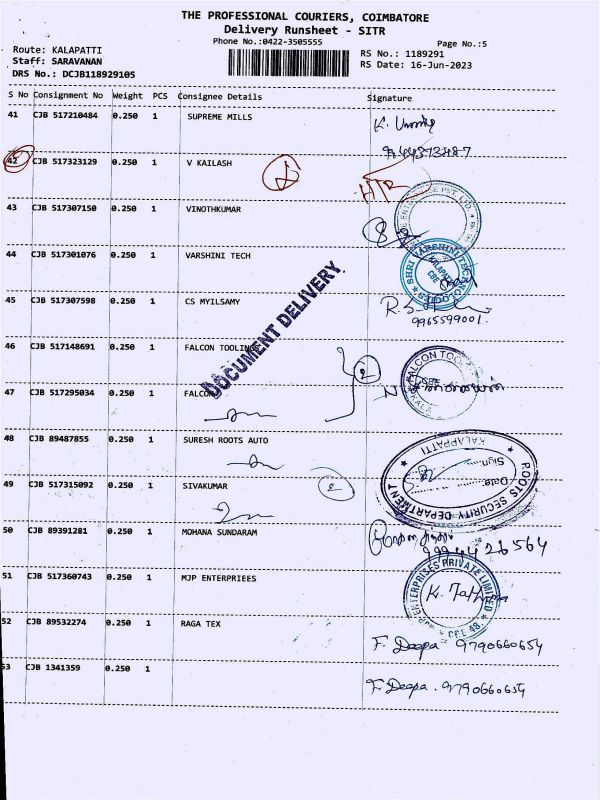 THE PROFESSIONAL COURIERS, COIMBATORE
Delivery Runsheet - SITR
Phone No.:0422-3505555
Page No.:5
Route: KALAPATTI
RS No.: 1189291
Staff: SARAVANAN
RS Date: 16-Jun-2023
DRS No.: DCJB118929105
S No Consignment No Weight PCS Consignee Details Signature
41 CJB 517210484 0.250 1 SUPREME MILLS
42 CJB 517323129 0.250 1 V KAILASH
43 CJB 517307150 0.250 1 VINOTHKUMAR
8
44 CJB 517301076 0.250 1 VARSHINI TECH
SHRI VARSHINI TECHNO
45 CJB 517307598 0.250 1 CS MYILSAMY
9965599001.
DOCUMENT DELIVERY
46 CJB 517148691 0.250 1 FALCON TOOLING
2
FALCON TOO
47 CJB 517295034 0.250 1 FALCON
48 CJB 89487855 0.250 1 SURESH ROOTS AUTO
KALAPPATTI
Sign
Date
ROOTS SECURITY DEPARTMENT
49 CJB 517315092 0.250 1 SIVAKUMAR
2
50 CJB 89391281 0.250 1 MOHANA SUNDARAM
51 CJB 517360743 0.250 1 MJP ENTERPRIEES
ENTERPRISES PRIVATE LIMITED
52 CJB 89532274 0.250 1 RAGA TEX
F. Deepa 9790660654
53 CJB 1341359 0.250 1
F. Deepa. 9790660654